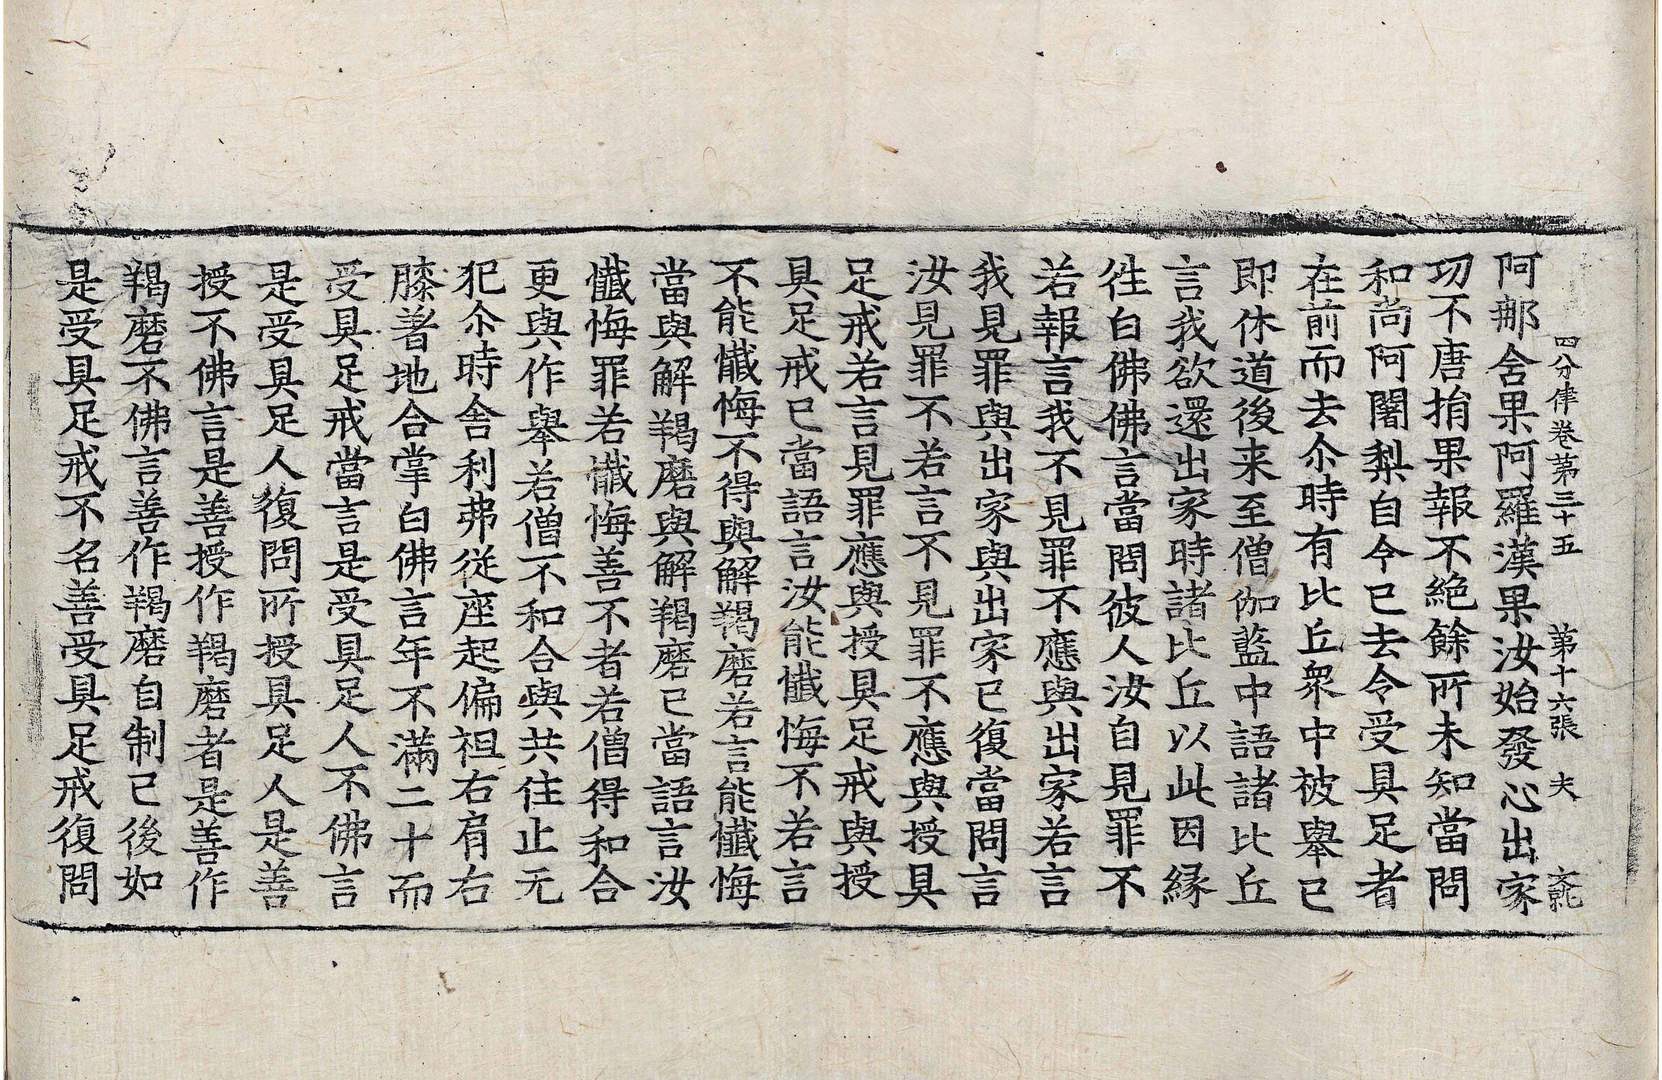 四分律卷第三十五 第十六張 夫
阿那舍果阿羅漢果汝始發心出家
㓛不唐捐果報不絶餘所未知當問
和尚阿闍梨自今已去令受具足者
在前而去尒時有比丘衆中被舉已
即休道後来至僧伽藍中語諸比丘
言我欲還出家時諸比丘以此因緣
徃白佛佛言當問彼人汝自見罪不
若報言我不見罪不應與出家若言
我見罪與出家與出家已復當問言
汝見罪不若言不見罪不應與授具
足戒若言見罪應與授具足戒與授
具足戒已當語言汝能懺悔不若言
不能懺悔不得與解羯磨若言能懺悔
當與解羯磨與解羯磨已當語言汝
懺悔罪若懺悔善不者若僧得和合
更與作舉若僧不和合與共住止无
犯尒時舍利弗從座起偏袒右肩右
膝著地合掌白佛言年不滿二十而
受具足戒當言是受具足人不佛言
是受具足人復問所授具足人是善
授不佛言是善授作羯磨者是善作
羯磨不佛言善作羯磨自制已後如
是受具足戒不名善受具足戒復問